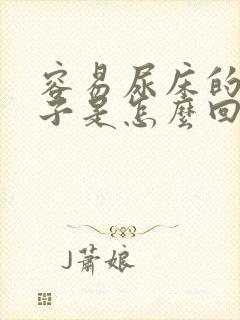 容易尿床的
子是怎麼回
J蕭娘